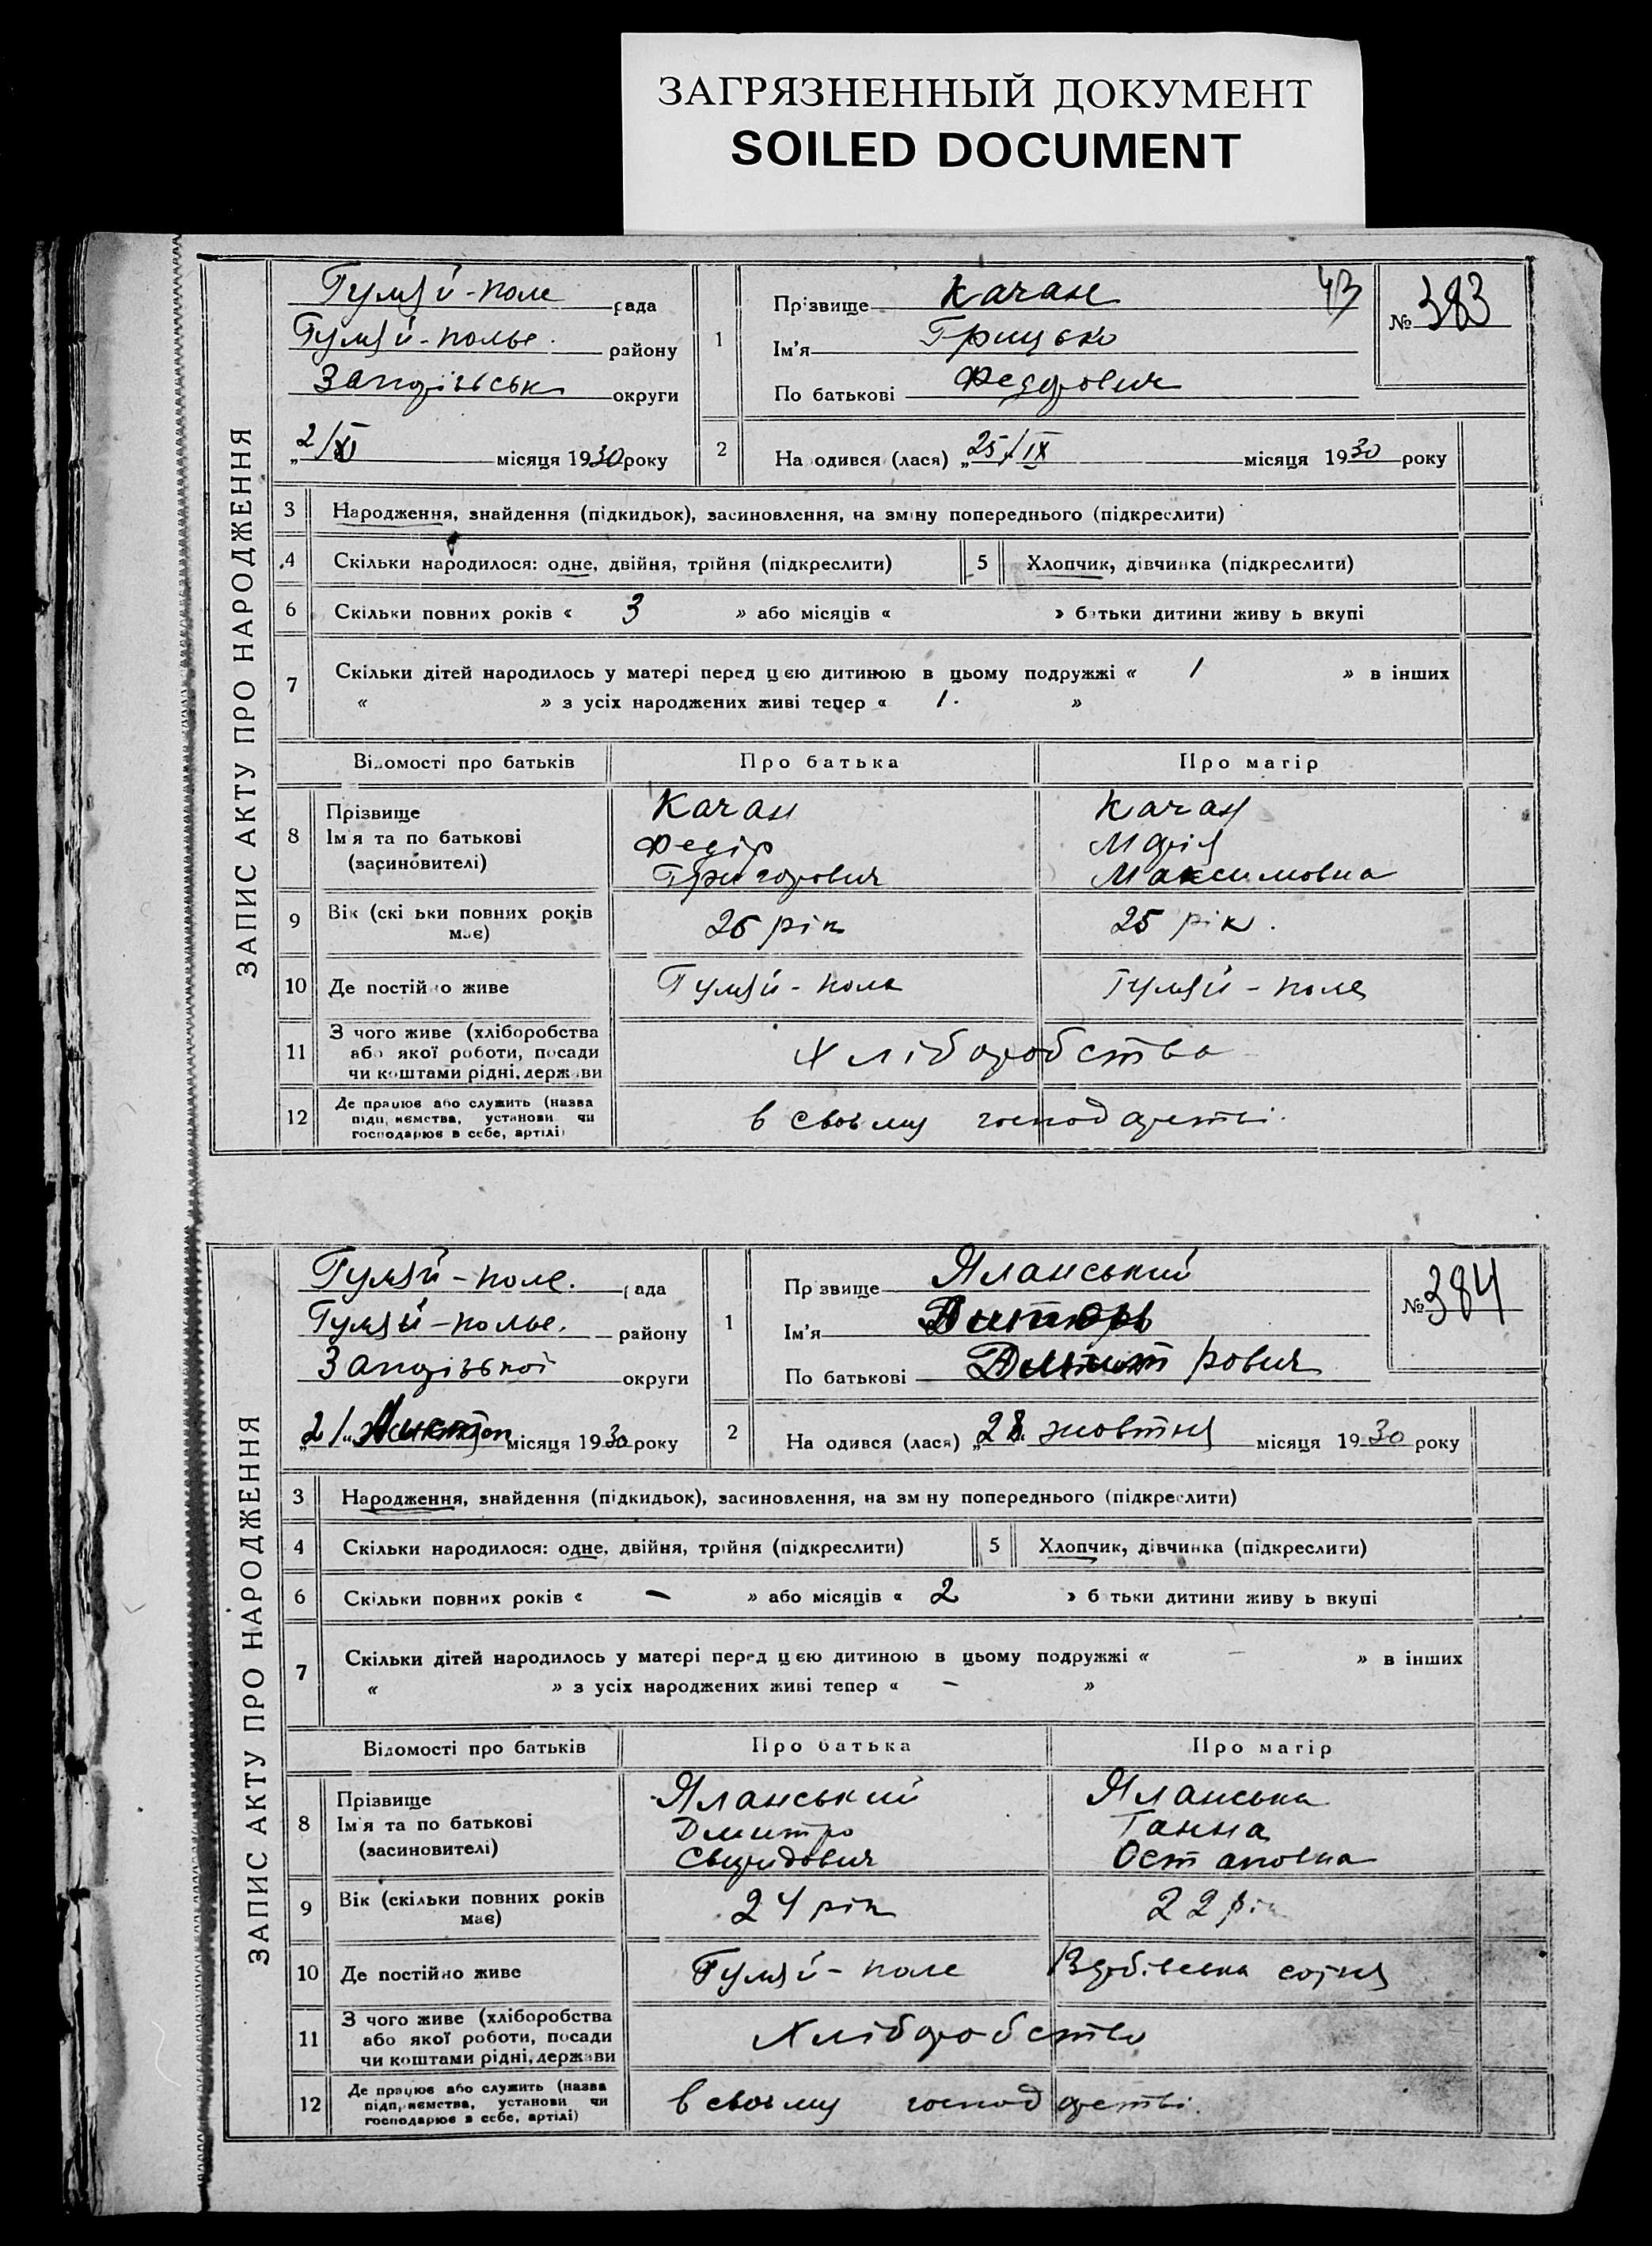 ЗАГРЯЗНЕННЫЙ ДОКУМЕНТ
SOILED DOCUMENT
ЗАПИС АКТУ ПРО НАРОДЖЕННЯ
Гуляй-поле рада
Гуляй-польс. району
Запорізьськ округи
„2/XI місяця 1930 року
1
Прізвище Качан 43
Ім'я Грицько
По батькові Федорович
№ 383
2
На одився (лася) „25/IX місяця 1930 року
3 Народження, знайдення (підкидьок), засиновлення, на зміну попереднього (підкреслити)
4 Скільки народилося: одне, двійня, трійня (підкреслити) 5 Хлопчик, дівчинка (підкреслити)
6 Скільки повних років « 3 » або місяців « » батьки дитини живу ь вкупі
7 Скільки дітей народилось у матері перед цею дитиною в цьому подружжі « 1 » в інших
« » з усіх народжених живі тепер « 1. »
Відомості про батьків Про батька Про матір
8 Прізвище Качан Качан
Ім'я та по батькові Федір Марія
(засиновителі) Григорович Максимовна
9 Вік (скі ьки повних років має) 26 рік 25 рік.
10 Де постійно живе Гуляй-поле Гуляй-поле
11 З чого живе (хліборобства
або якої роботи, посади Хліборобства
чи коштами рідні, держави
12 Де працює або служить (назва
підприємства, установи чи в своъму господарстві.
господарює в себе, артілі)
ЗАПИС АКТУ ПРО НАРОДЖЕННЯ
Гуляй-поле. рада
Гуляй-польс. району
Запорізької округи
„2/ місяця 1930 року
1
Пр звище Яланський
Ім'я Вікторь
По батькові Дмитрович
№ 384
2
На одився (лася) „28. жовтня місяця 1930 року
3 Народження, знайдення (підкидьок), засиновлення, на зм ну попереднього (підкреслити)
4 Скільки народилося: одне, двійня, трійня (підкреслити) 5 Хлопчик, дівчинка (підкреслити)
6 Скільки повних років « – » або місяців « 2 » б тьки дитини живу ь вкупі
7 Скільки дітей народилось у матері перед цею дитиною в цьому подружжі « – » в інших
« » з усіх народжених живі тепер « – »
Відомості про батьків Про батька Про матір
8 Прізвище Яланський Яланська
Ім'я та по батькові Дмитро Ганна
(засиновителі) Свиридович Остаповна
9 Вік (скільки повних років має) 24 рік 22 рік
10 Де постійно живе Гуляй-поле сотня
11 З чого живе (хліборобства
або якої роботи, посади Хліборобство
чи коштами рідні, держави
12 Де працює або служить (назва
підприємства, установи чи в своъму господарстві.
господарює в себе, артілі)